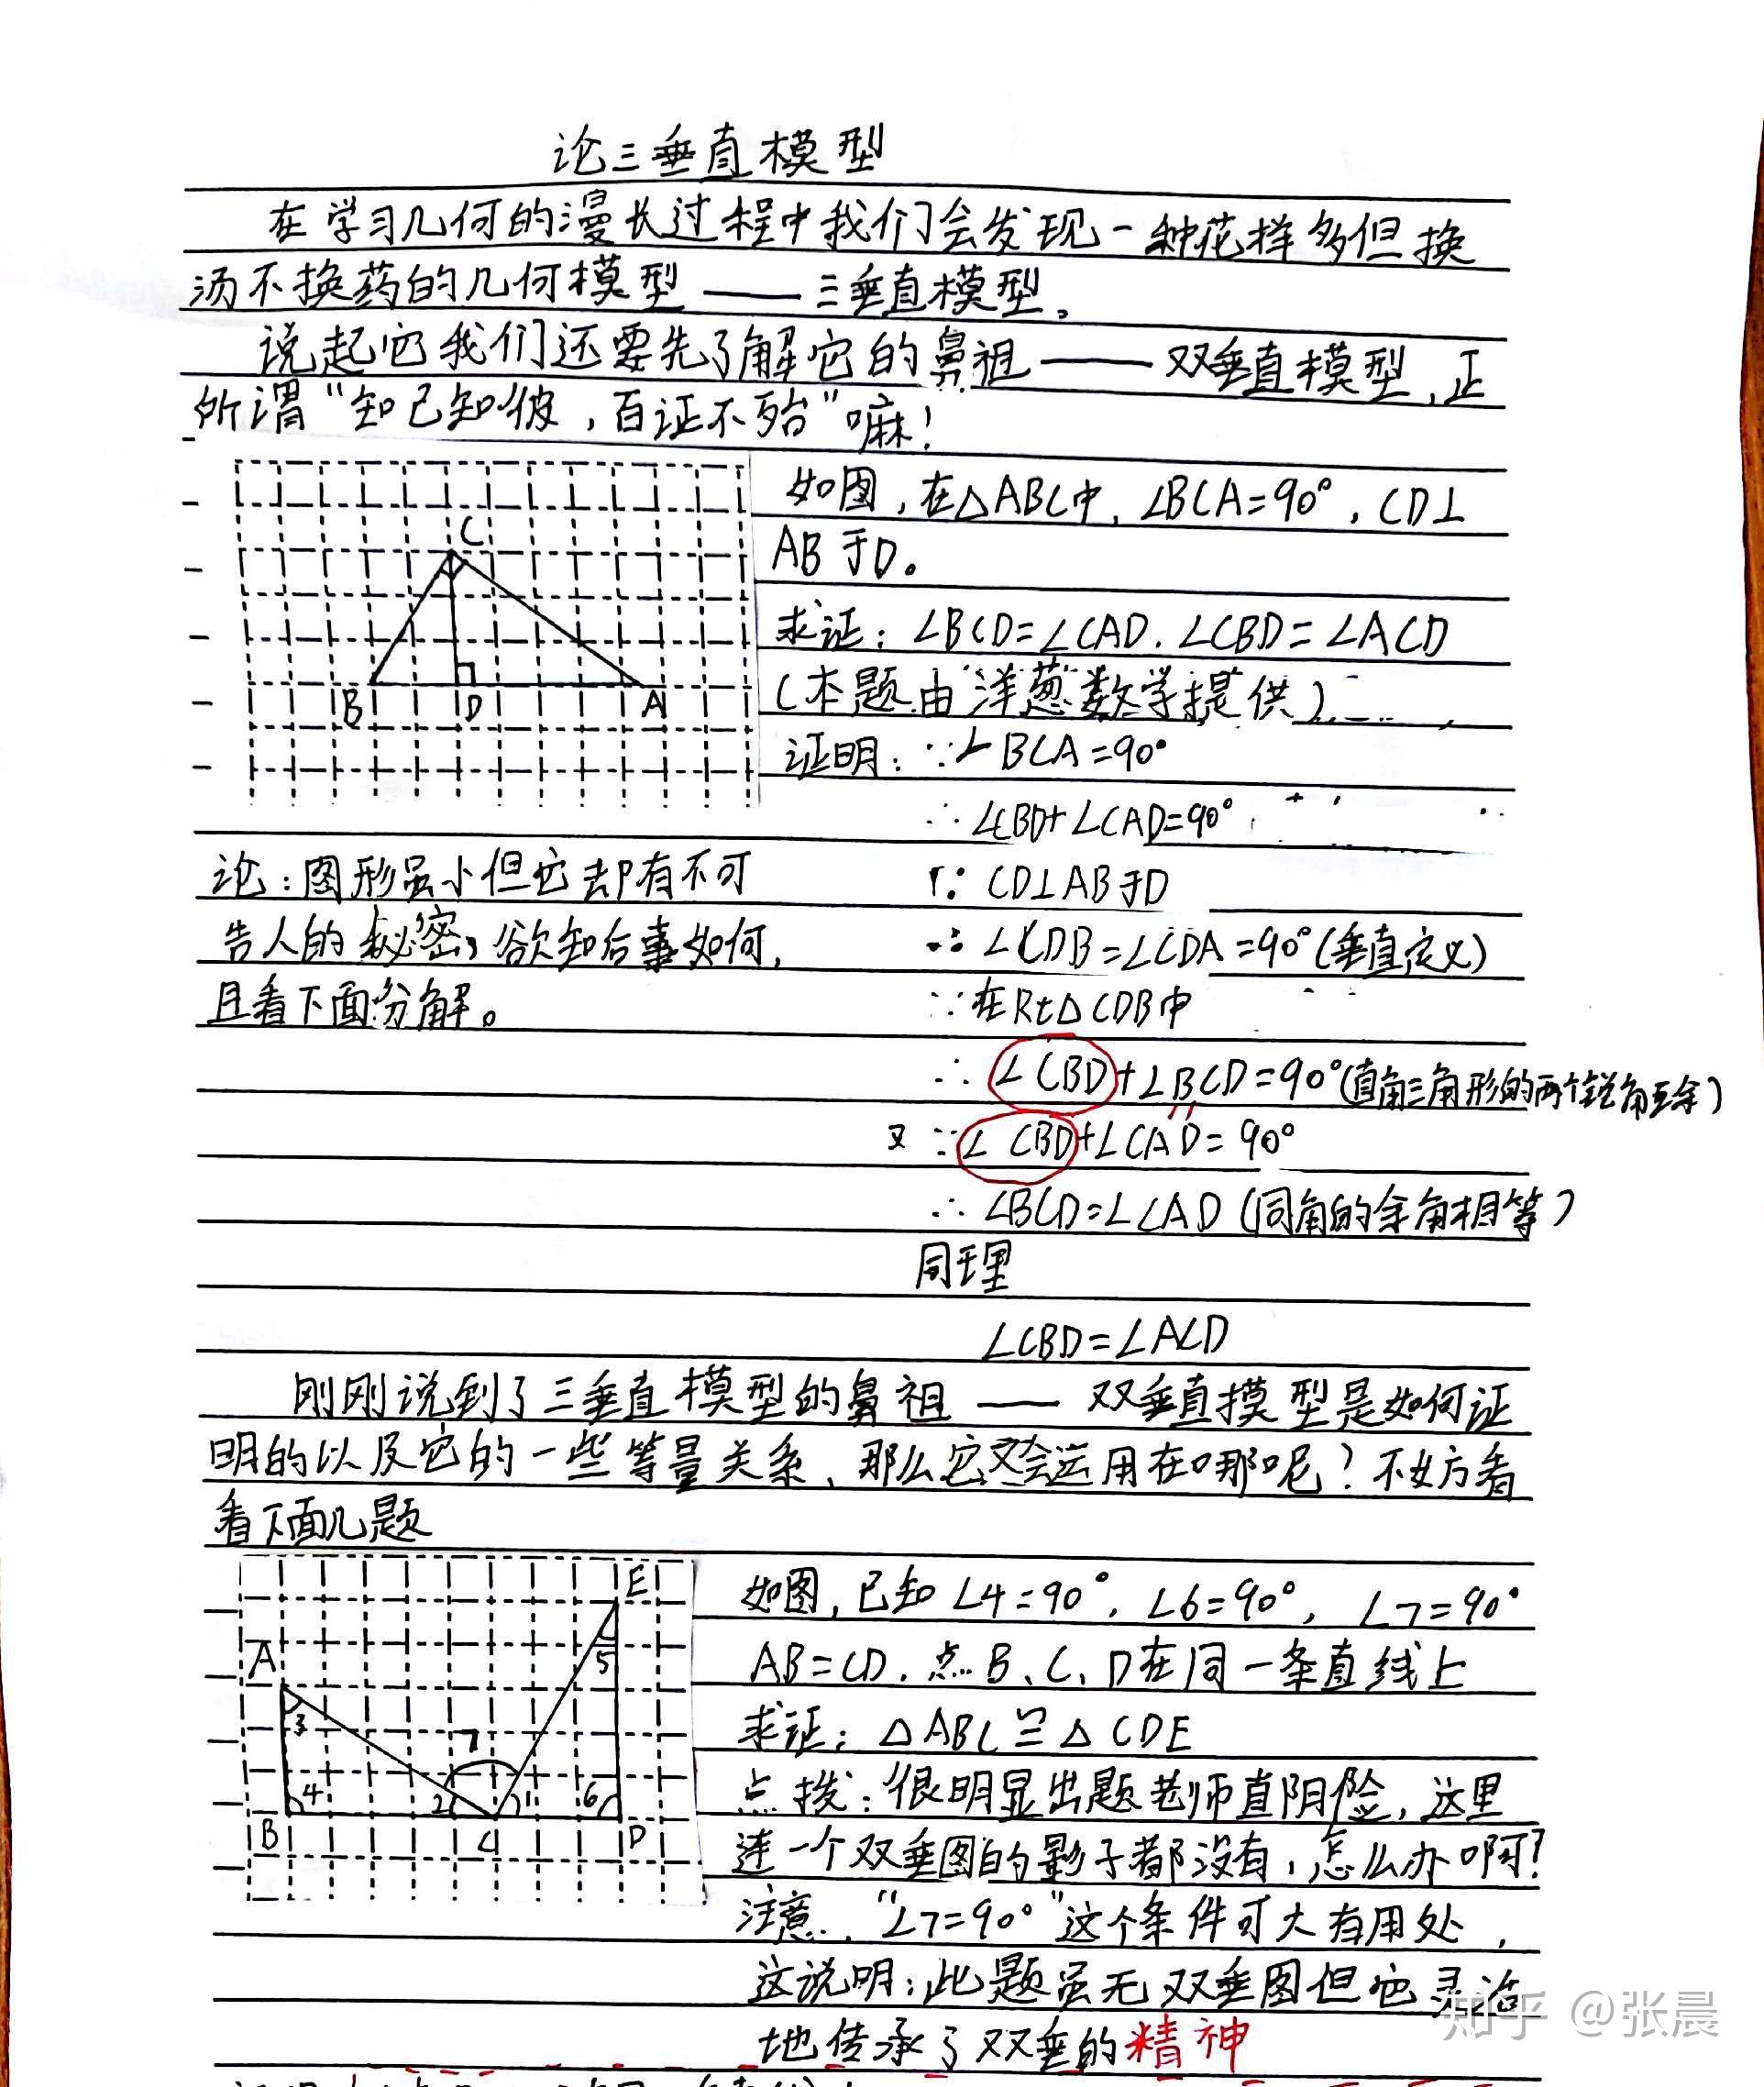 论三垂直模型
在学习几何的漫长过程中我们会发现一种花样多但换
汤不换药的几何模型——三垂直模型。
说起它我们还要先了解它的鼻祖——双垂直模型,正
所谓“知己知彼,百证不殆”嘛!
如图,在△ABC中,∠BCA=90°,CD⊥
AB于D。
求证:∠BCD=∠CAD.∠CBD=∠ACD
(本题由“洋葱”数学提供)
证明:∵∠BCA=90°
∴∠CBD+∠CAD=90°
∵CD⊥AB于D
∴∠CDB=∠CDA=90°(垂直定义)
∵在Rt△CDB中
∴∠CBD+∠BCD=90°(直角三角形的两个锐角互余)
又∵∠CBD+∠CAD=90°
∴∠BCD=∠CAD(同角的余角相等)
同理
∠CBD=∠ACD
C
B
D
A
论:图形虽小但它却有不可
告人的秘密,欲知后事如何,
且看下面分解。
刚刚说到了三垂直模型的鼻祖——双垂直摸型是如何证
明的以及它的一些等量关系,那么它又会运用在哪呢?不妨看
看下面几题
E
A
5
3
7
4
2
1
6
B
C
D
如图,已知∠4=90°,∠6=90°,∠7=90°
AB=CD.点B、C、D在同一条直线上
求证:△ABC≌△CDE
点拨:很明显出题老师直阴险,这里
连一个双垂图的影子都没有,怎么办啊?
注意,“∠7=90°”这个条件可大有用处,
这说明:此题虽无双垂图但它灵活
地传承了双垂的精神
知乎 @张晨